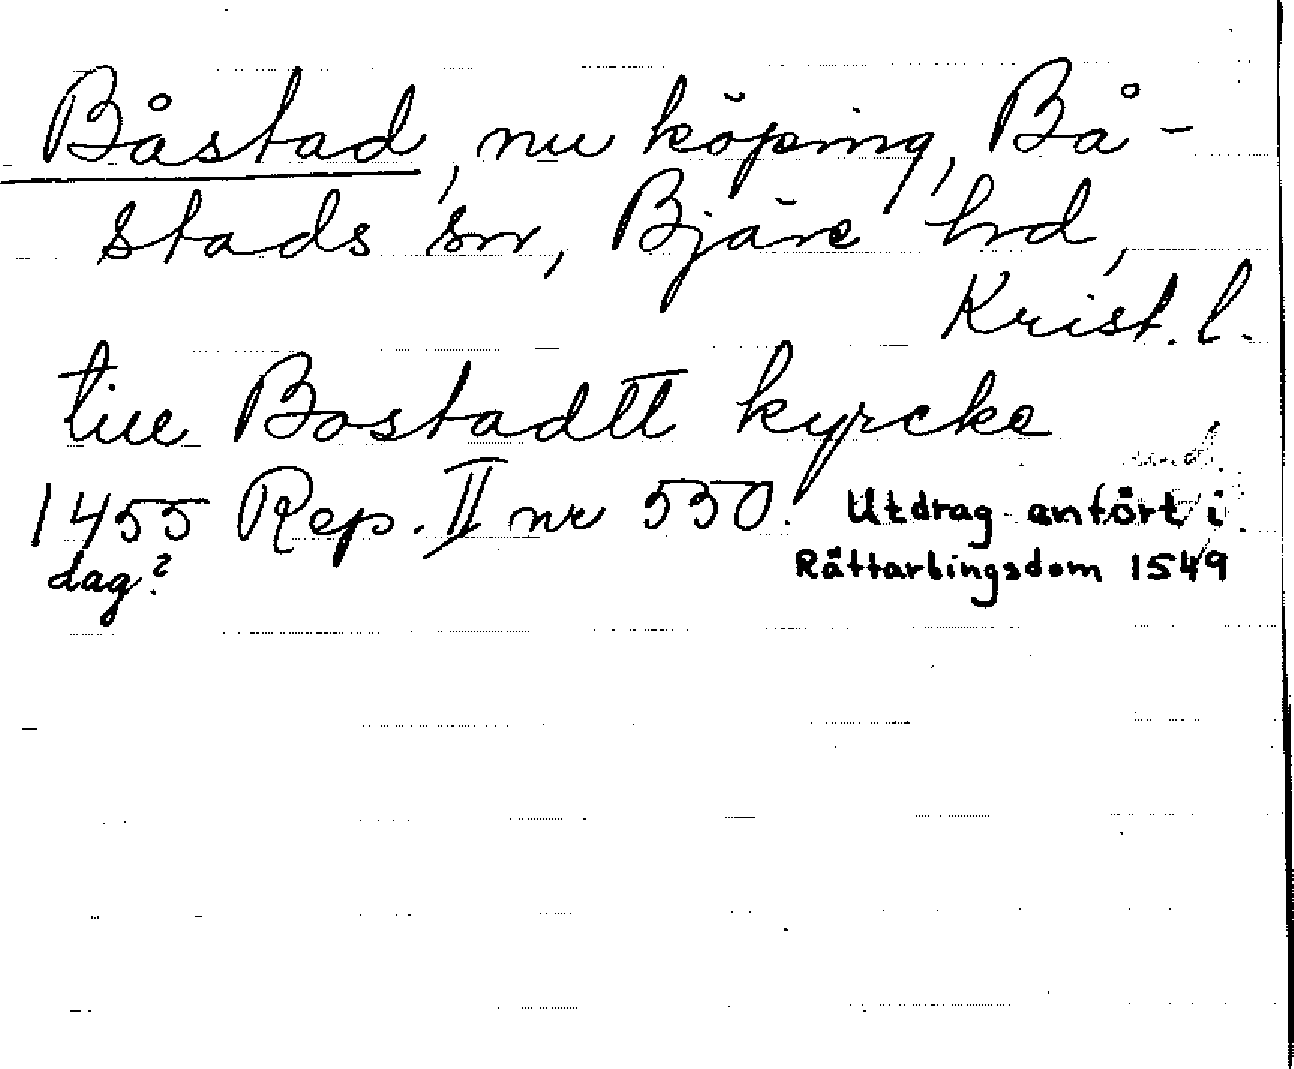 Båstad, nu köping, Bå-
stads sn, Bjäre hd,
Krist. l.
till Bostadtt kyrcke
1455 Rep. II nr 550. Utdrag anfört i
dag? Rättartingsdom 1549